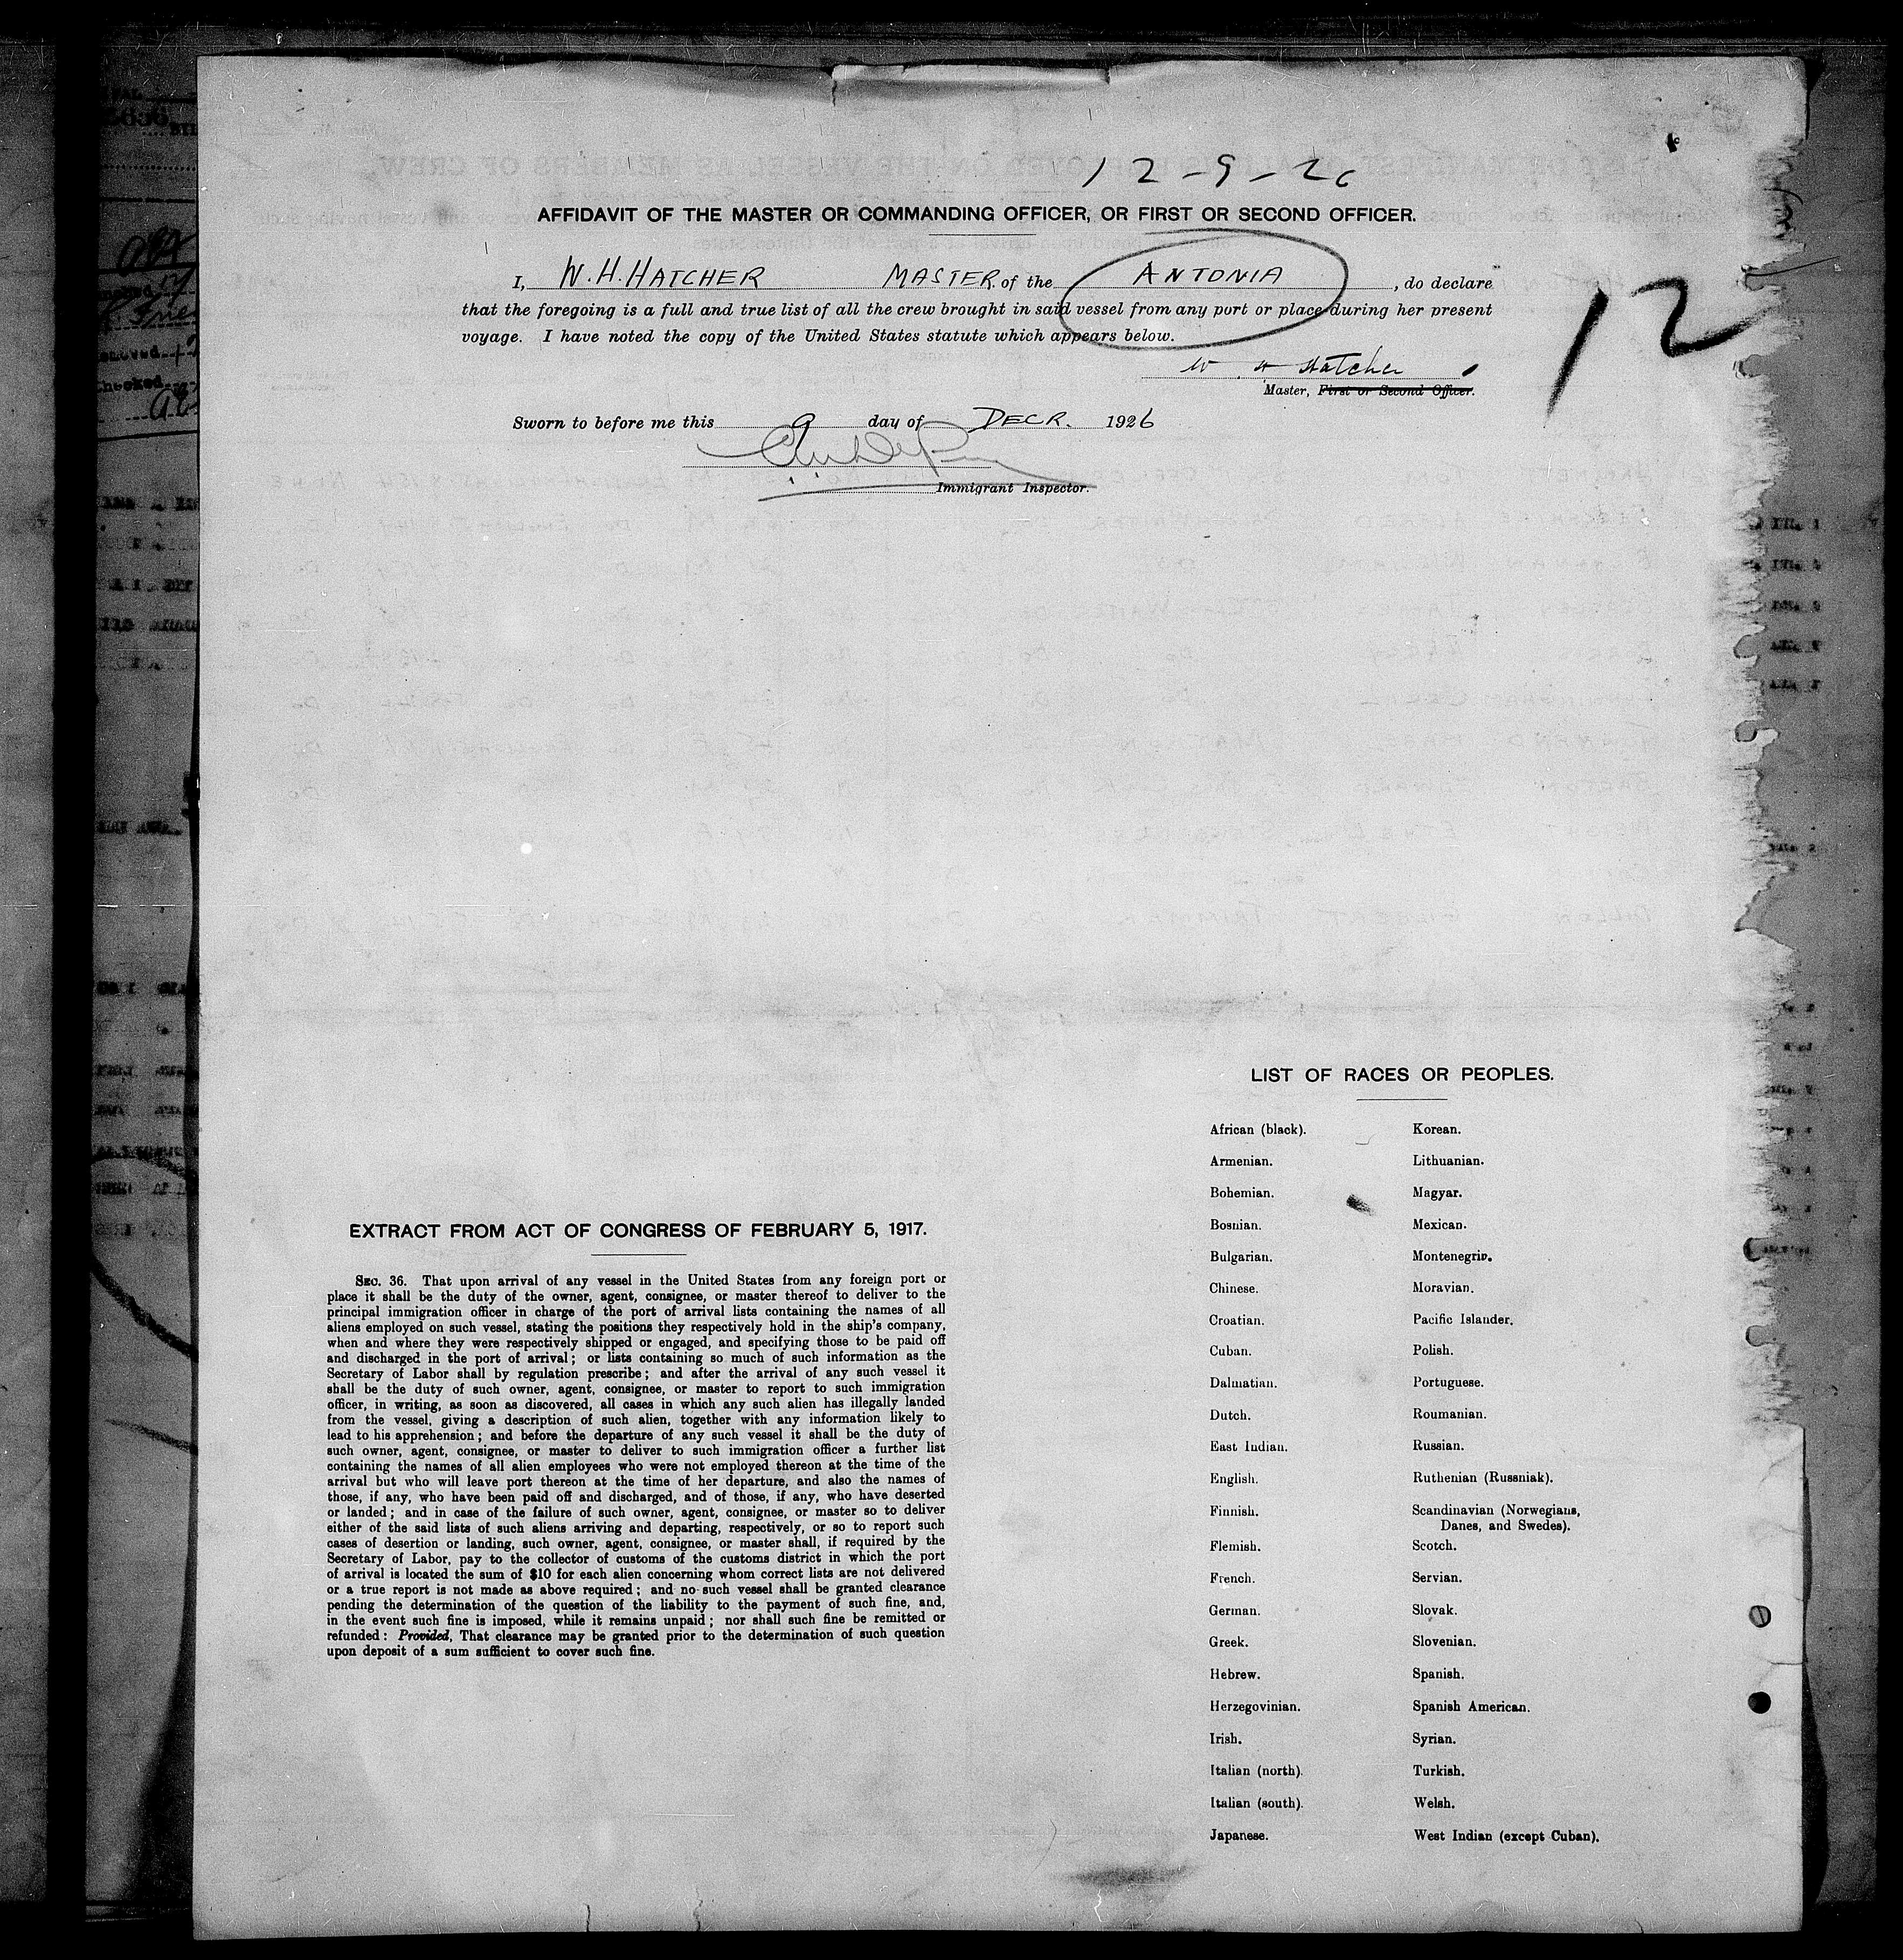 12-9-26
AFFIDAVIT OF THE MASTER OR COMMANDING OFFICER, OR FIRST OR SECOND OFFICER.
I, W. H. HATCHER MASTER of the ANTONIA, do declare
that the foregoing is a full and true list of all the crew brought in said vessel from any port or place during her present
voyage. I have noted the copy of the United States statute which appears below.
12
W H Hatcher
Master, First or Second Officer.
Sworn to before me this 9 day of DECR. 1926
Immigrant Inspector.
EXTRACT FROM ACT OF CONGRESS OF FEBRUARY 5, 1917.
SEC. 36. That upon arrival of any vessel in the United States from any foreign port or
place it shall be the duty of the owner, agent, consignee, or master thereof to deliver to the
principal immigration officer in charge of the port of arrival lists containing the names of all
aliens employed on such vessel, stating the positions they respectively hold in the ship's company,
when and where they were respectively shipped or engaged, and specifying those to be paid off
and discharged in the port of arrival; or lists containing so much of such information as the
Secretary of Labor shall by regulation prescribe; and after the arrival of any such vessel it
shall be the duty of such owner, agent, consignee, or master to report to such immigration
officer, in writing, as soon as discovered, all cases in which any such alien has illegally landed
from the vessel, giving a description of such alien, together with any information likely to
lead to his apprehension; and before the departure of any such vessel it shall be the duty of
such owner, agent, consignee, or master to deliver to such immigration officer a further list
containing the names of all alien employees who were not employed thereon at the time of the
arrival but who will leave port thereon at the time of her departure, and also the names of
those, if any, who have been paid off and discharged, and of those, if any, who have deserted
or landed; and in case of the failure of such owner, agent, consignee, or master so to deliver
either of the said lists of such aliens arriving and departing, respectively, or so to report such
cases of desertion or landing, such owner, agent, consignee, or master shall, if required by the
Secretary of Labor, pay to the collector of customs of the customs district in which the port
of arrival is located the sum of $10 for each alien concerning whom correct lists are not delivered
or a true report is not made as above required; and no such vessel shall be granted clearance
pending the determination of the question of the liability to the payment of such fine, and,
in the event such fine is imposed, while it remains unpaid; nor shall such fine be remitted or
refunded: Provided, That clearance may be granted prior to the determination of such question
upon deposit of a sum sufficient to cover such fine.
LIST OF RACES OR PEOPLES.
African (black). Korean.
Armenian. Lithuanian.
Bohemian. Magyar.
Bosnian. Mexican.
Bulgarian. Montenegrin.
Chinese. Moravian.
Croatian. Pacific Islander.
Cuban. Polish.
Dalmatian. Portuguese.
Dutch. Roumanian.
East Indian. Russian.
English. Ruthenian (Russniak).
Finnish. Scandinavian (Norwegians,
Danes, and Swedes).
Flemish. Scotch.
French. Servian.
German. Slovak.
Greek. Slovenian.
Hebrew. Spanish.
Herzegovinian. Spanish American.
Irish. Syrian.
Italian (north). Turkish.
Italian (south). Welsh.
Japanese. West Indian (except Cuban).